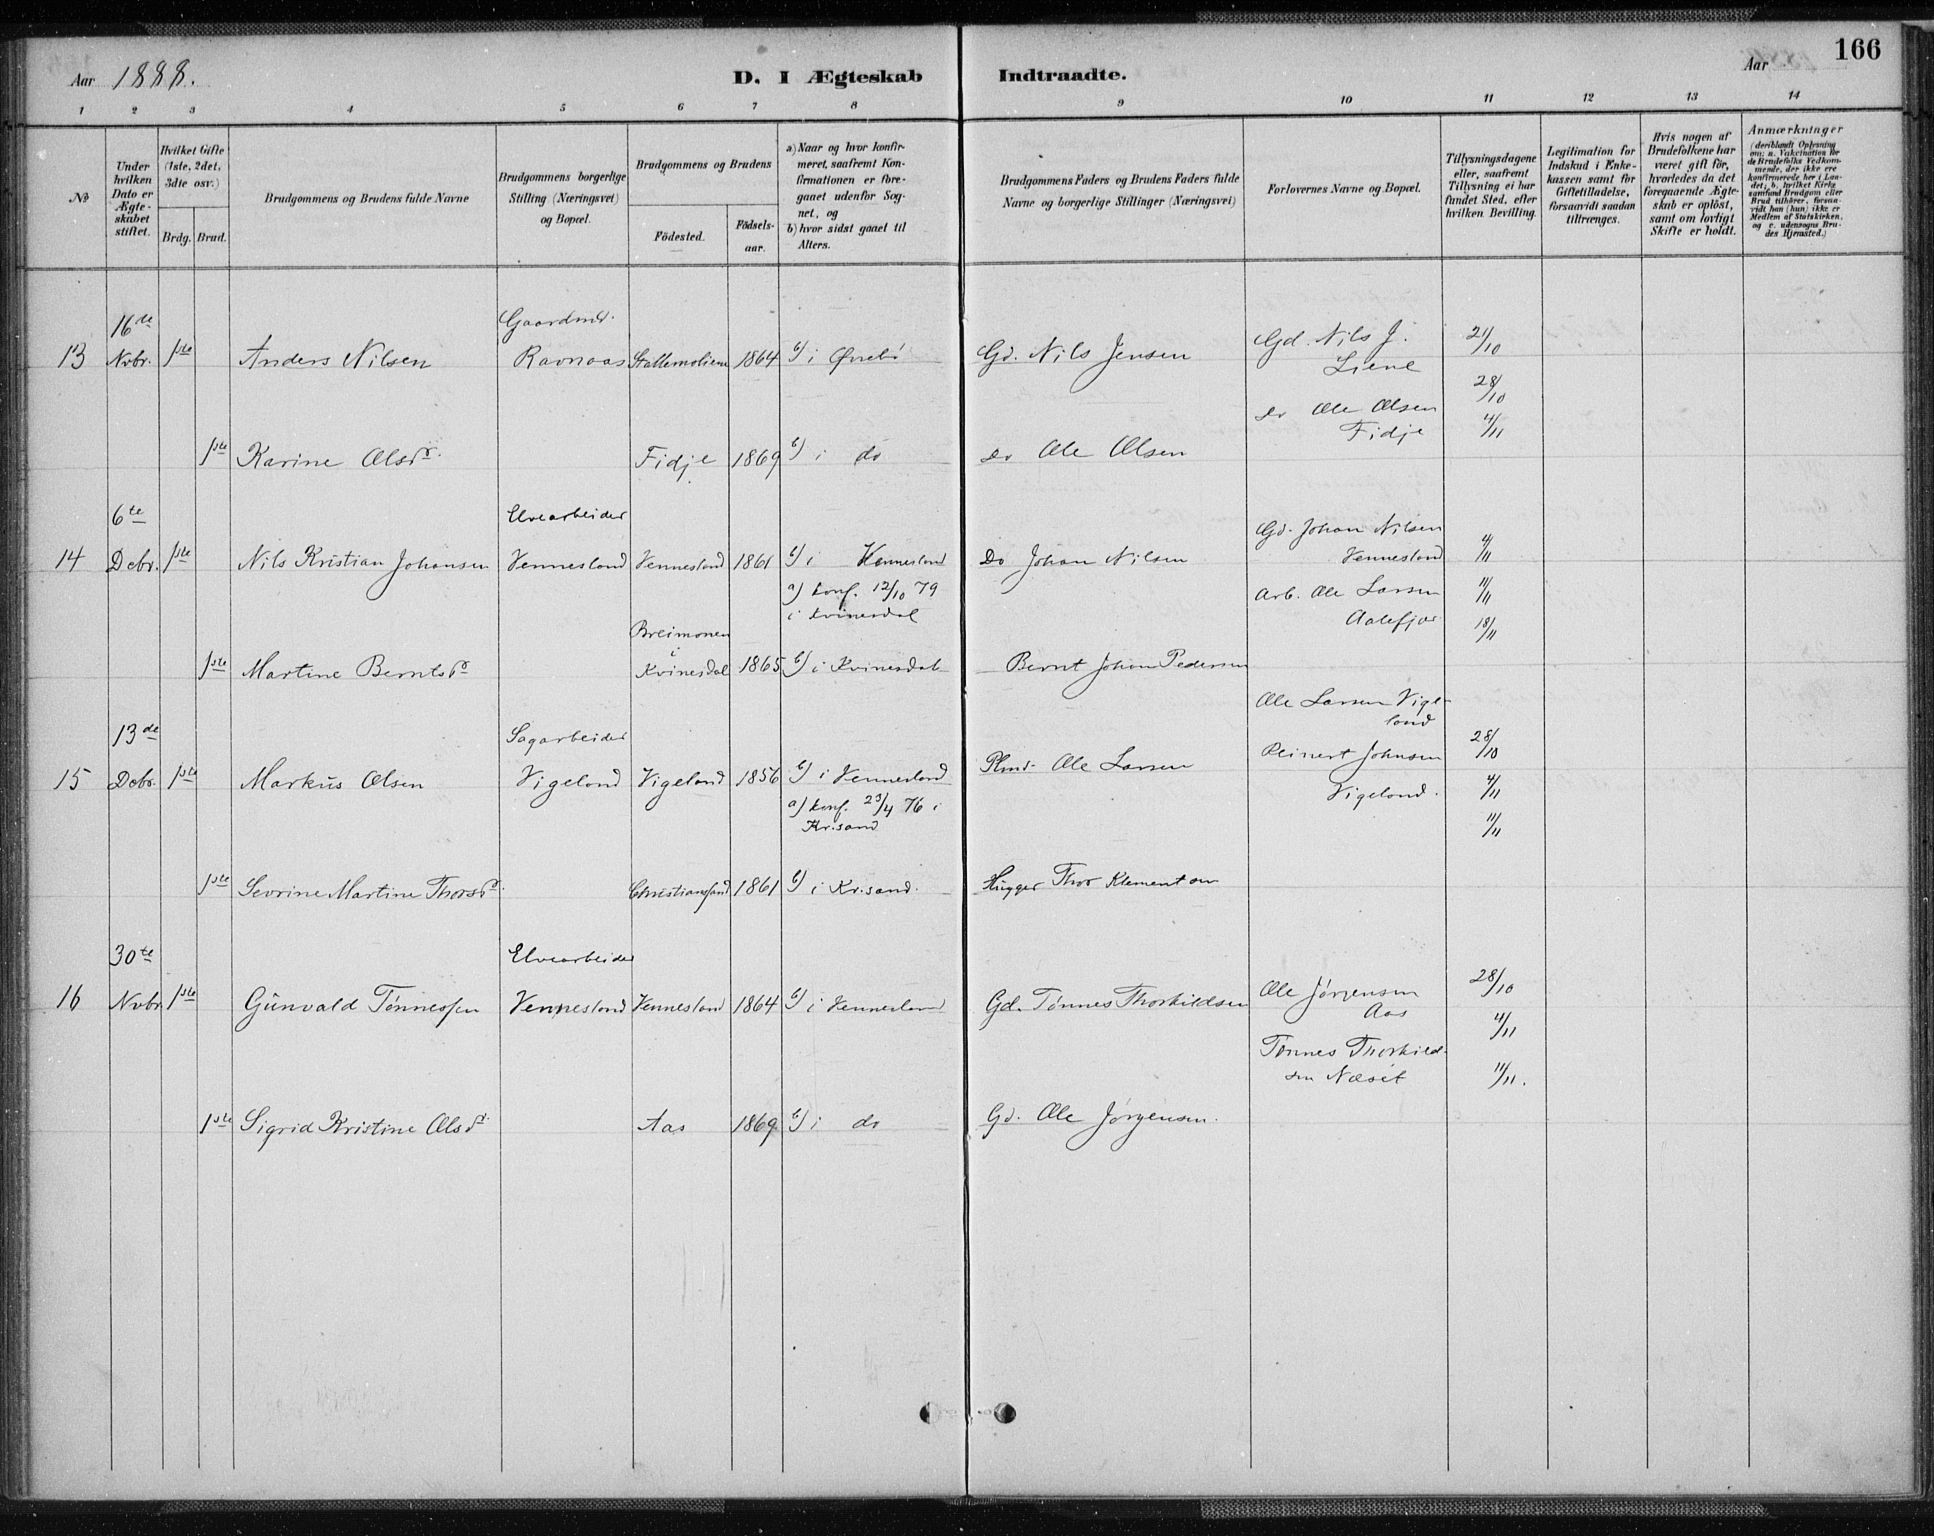 166
Aar 1888.
D. I Ægteskab Indtraadte.
Aar
1 2 3 4 5 6 7 8 9 10 11 12 13 14
№
Under hvilken Dato er Ægte-skabet stiftet.
Hvilket Gifte (1ste, 2det, 3die osv.)
Brdg. Brud.
Brudgommens og Brudens fulde Navne
Brudgommens borgerlige Stilling (Næringsvei) og Bopæl.
Brudgommens og Brudens
Födested.
Födsels-aar.
a) Naar og hvor konfir-meret, saafremt Kon-firmationen er fore-gaaet udenfor Sog-net, og
b) hvor sidst gaaet til Alters.
Brudgommens Faders og Brudens Faders fulde Navne og borgerlige Stillinger (Næringsvei)
Forlovernes Navne og Bopæl.
Tillysningsdagene eller, saafremt Tillysning ei har fundet Sted, efter hvilken Bevilling.
Legitimation for Indskud i Enke-kassen samt for Giftetilladelse, forsaavidt saadan tiltrænges.
Hvis nogen af Brudefolkene har været gift før, hvorledes da det foregaaende Ægte-skab er oplöst, samt om lovligt Skifte er holdt.
Anmærkninger (deriblandt Oplysning om: a. Vakcination for de Brudefolks Vedkom-mende, der ikke ere konfirmerede her i Lan-det; b. hvilket Kirke-samfund Brudgom eller Brud tilhører, forsaa-vidt han (hun) ikke er Medlem af Statskirken, og c. udensogns Bru-des Hjemsted.)
16de Gaardmd.
13 Nvbr. 1ste Anders Nilsen Ravnaas Stallemoliene 1864 b) i Øvrebø Gd. Nils Jensen Gd. Nils J. Liene 21/10
28/10
do Ole Olsen Fidje 4/11
1ste Karine Olsdr. Fidje 1869 b) i do do Ole Olsen
6te Elvearbeider
14 Dcbr. 1ste Nils Kristian Johansen Vennesland Vennesland 1861 b) i Vennesland Do Johan Nilsen Gd. Johan Nilsen Vennesland 4/11
a) konf. 12/10 79 i Kvinesdal Arb. Ole Larsen Aalefjær 11/11
18/11
Breimonen i
1ste Martine Berntsdr Kvinesdal 1865 b) i Kvinesdal Bernt Johan Pedersen
13de Sagarbeider Ole Larsen Vige-land
15 Dcbr. 1ste Markus Olsen Vigeland Vigeland 1856 b) i Vennesland Plmd. Ole Larsen Reinert Johnsen Vigeland. 28/10
a) konf. 23/4 76 i Kr.sand 4/11
11/11
1ste Sevrine Martine Thorsdr. Christianssand 1861 b) i Kr.sand. Hugger Thor Klementsen
30te Elvearbeider
16 Nvbr 1ste Gunvald Tønnessen Vennesland Vennesland 1864 b) i Vennesland Gd. Tønnes Thorkildsen Ole Jørgensen Aas 28/10
4/11
Tønnes Thorkild-sen Næset 11/11.
1ste Sigrid Kristine Olsdr Aas 1869 b) i do Gd. Ole Jørgensen.